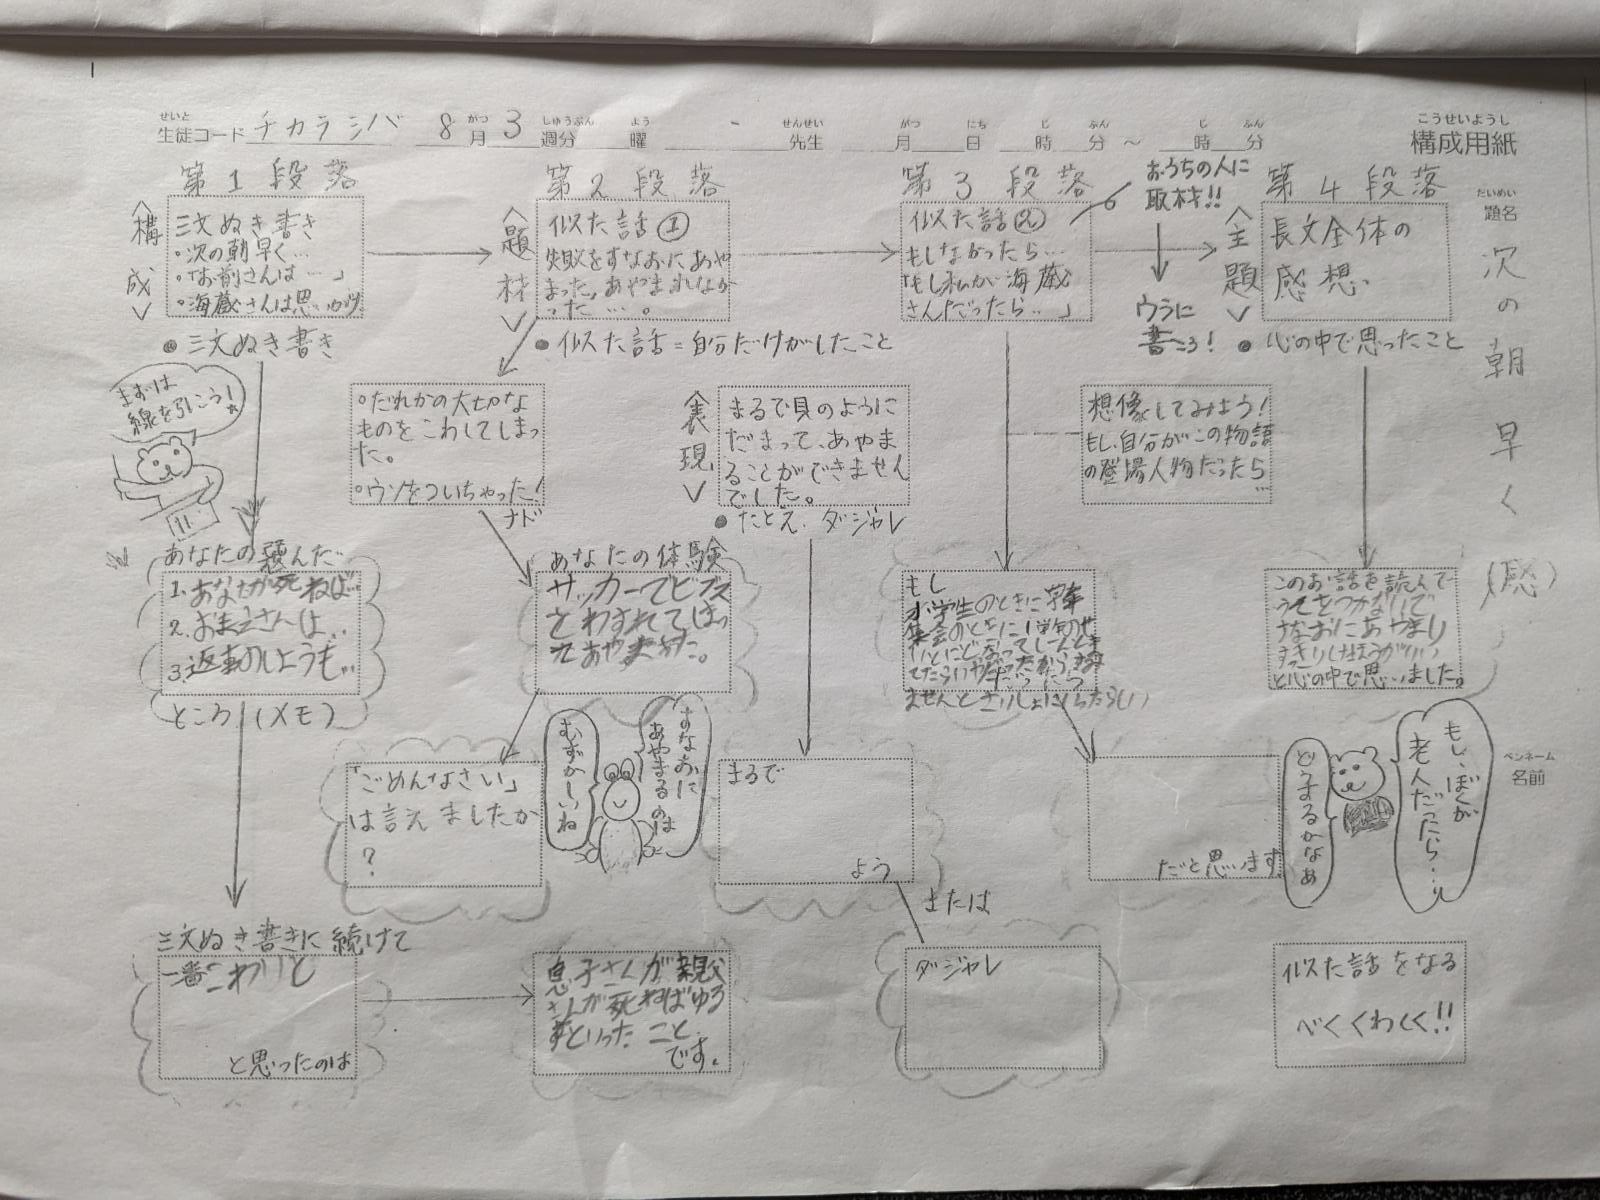 せいと
生徒コード チカラシバ 8月 3週分 曜 - 先生 月 日 時 分 ~ 時 分
がつ しゅうぶん よう せんせい がつ にち じ ぷん じ ぷん
こうせいようし
構成用紙
だいめい
題名
次の朝早く(感)
ペンネーム
名前
第1段落
<構成>
三文ぬき書き
・次の朝早く…
・「お前さんは…」
・海蔵さんは思いがけ
●三文ぬき書き
まずは
線を引こう!
あなたの選んだ
1.あなたが死ねば…
2.おまえさんは…
3.返事のしようも…
ところ(メモ)
三文ぬき書きに続けて
一番こわいと
と思ったのは
息子さんが親父
さんが死ねばゆる
すといったこと
です。
第2段落
<題材>
似た話①
失敗をすなおにあや
まった。あやまれなか
った…。
●似た話=自分だけがしたこと
・だれかの大切な
ものをこわしてしまっ
た。
・ウソをついちゃった!
ナド
あなたの体験
サッカーでビブス
をわすれてはっ
「ごめんなさい」
は言えましたか
?
すなおに
あやまるのは
むずかしいね
<表現>
まるで貝のように
だまって、あやま
ることができません
でした。
●たとえ、ダジャレ
まるで
よう
または
ダジャレ
第3段落
おうちの人に
取材!!
ウラに
書こう!
似た話②
もしなかったら…
「もし私が海蔵
さんだったら…」
想像してみよう!
もし、自分がこの物語
の登場人物だったら
…
もし
小学生のときに学年
集会のときに
だと思います
もし、ぼくが
老人だったら…
どうするかなぁ
第4段落
<主題>
長文全体の
感想
●心の中で思ったこと
このお話を読んで
うそをつかないで
すなおにあやまり
すっきりしたほうがいい
と心の中で思いました。
似た話をなる
べくくわしく!!